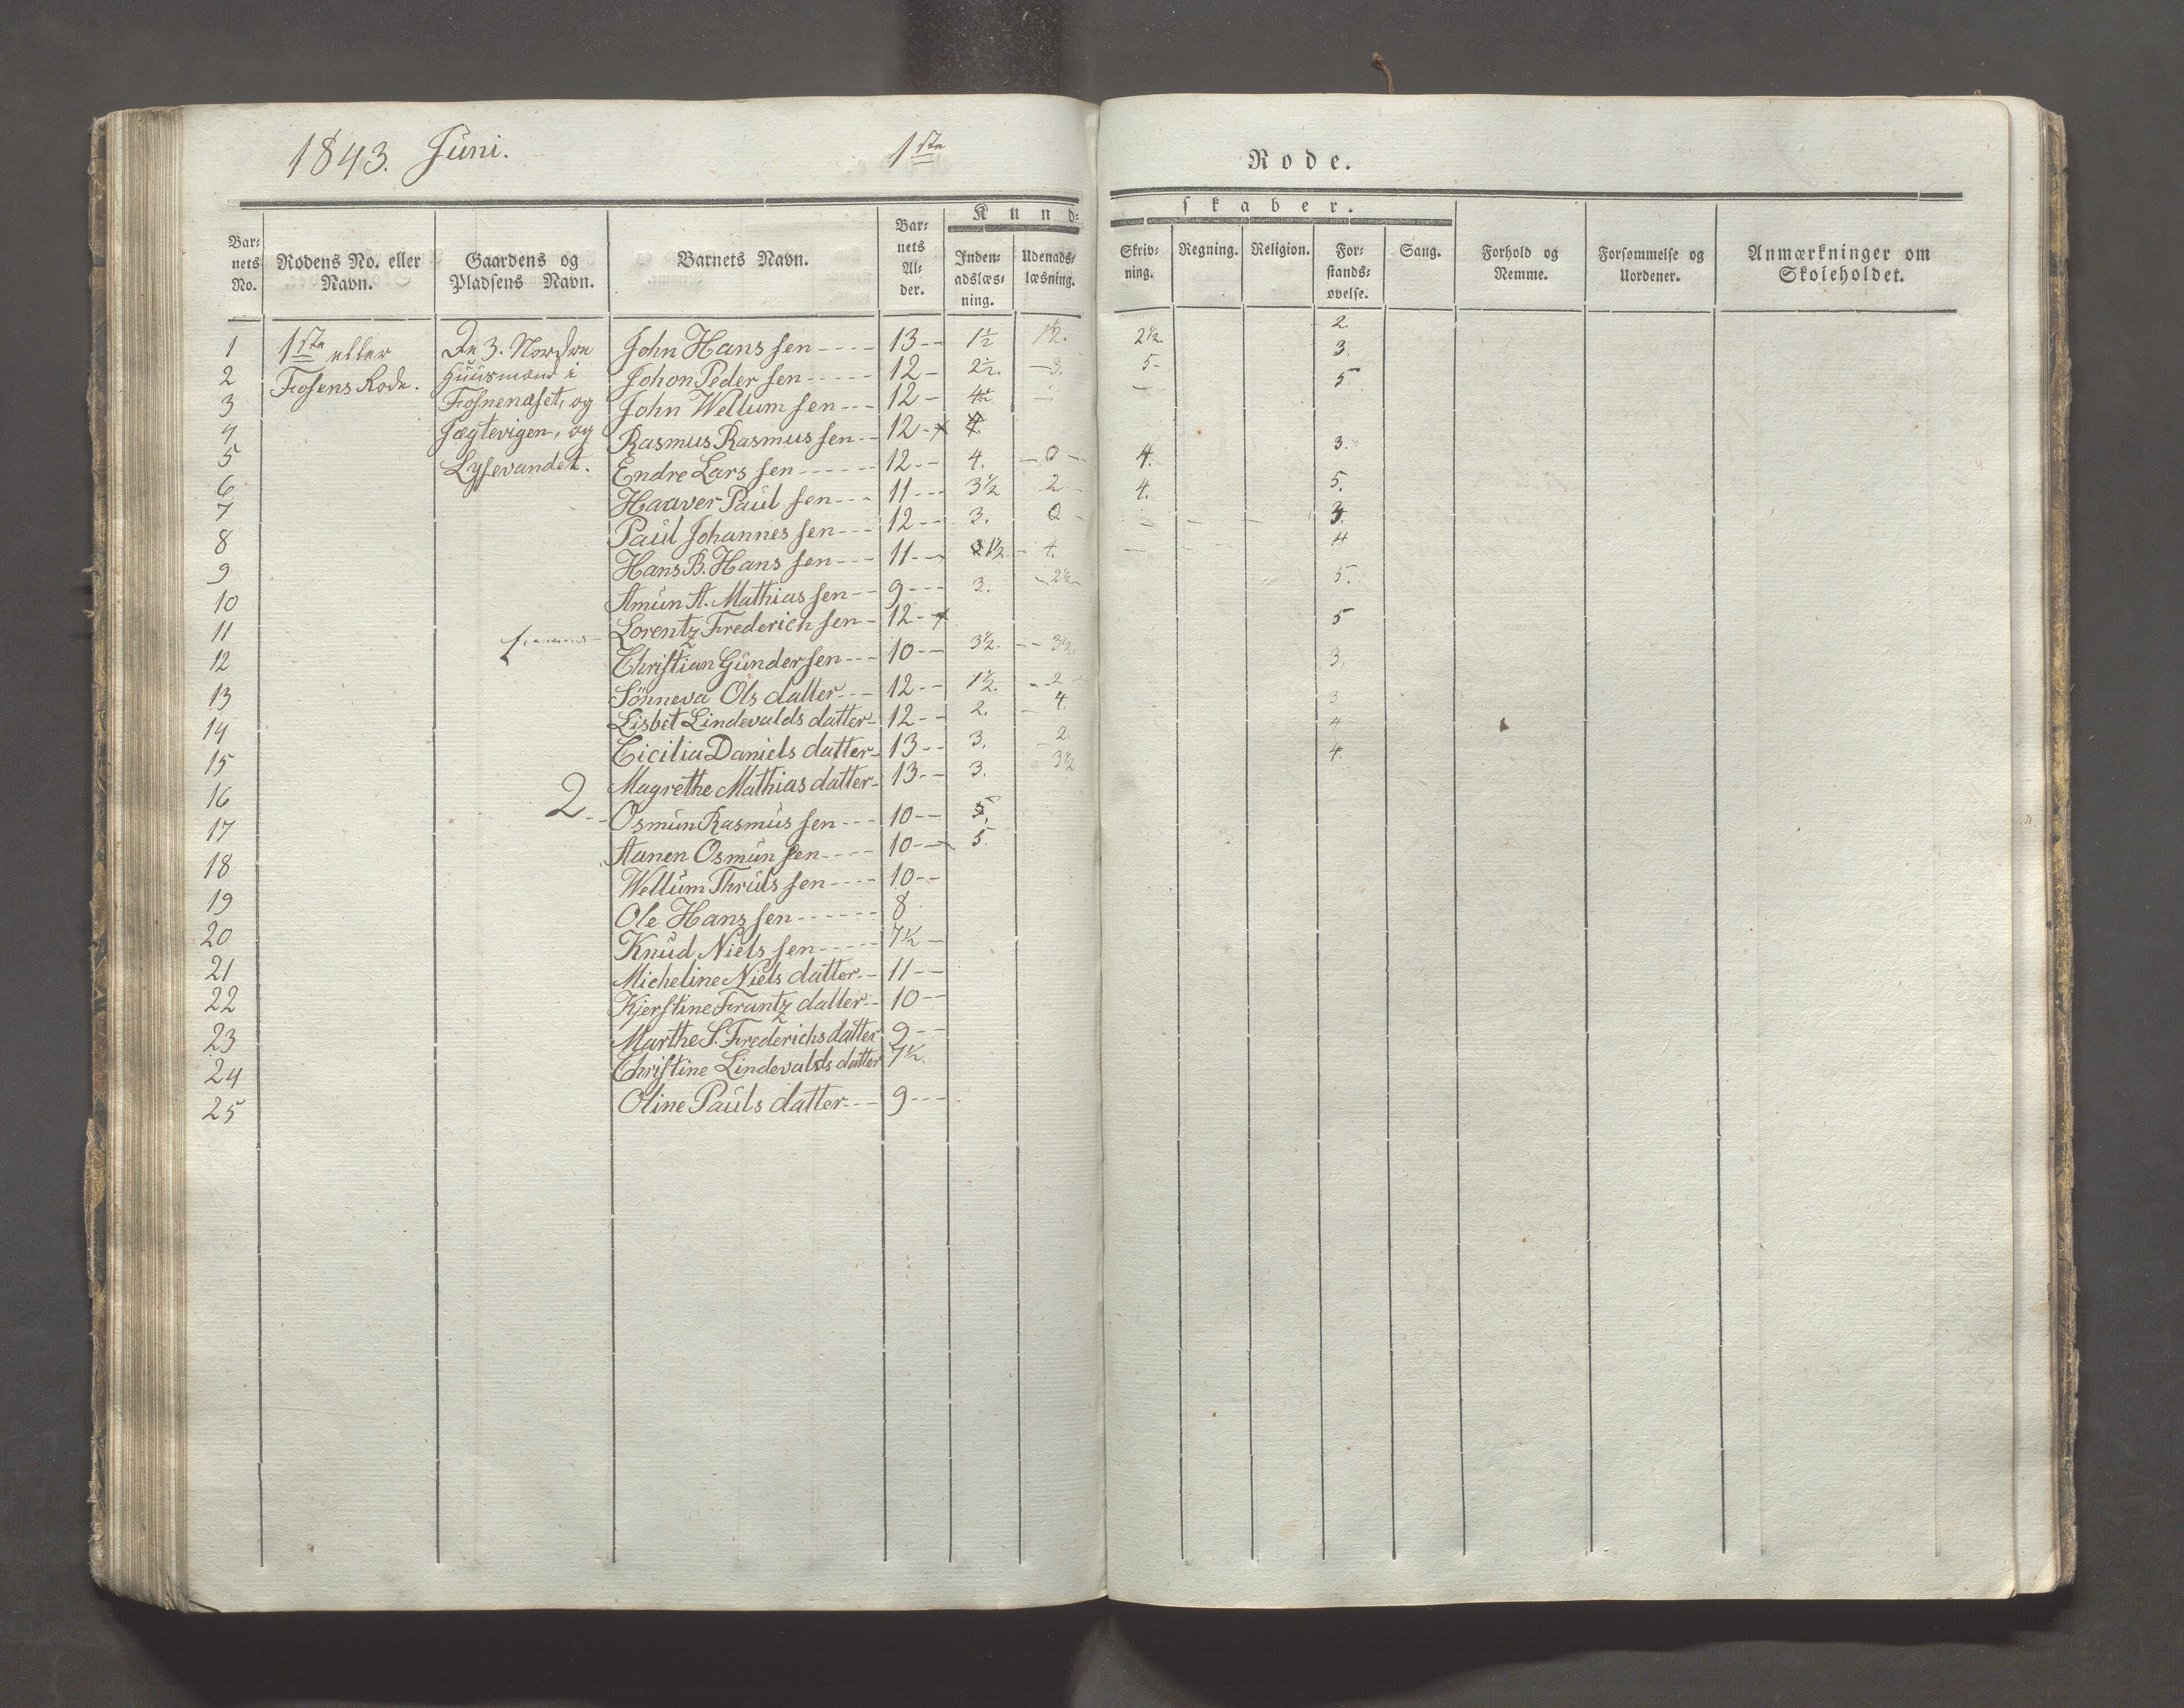 1843. Juni. 1ste Rode.
Kundskaber.
Barnets No. Rodens No. eller Navn. Gaardens og Pladsens Navn. Barnets Navn. Barnets Alder. Indenadslæsning. Udenadslæsning. Skrivning. Regning. Religion. Forstandsøvelse. Sang. Forhold og Nemme. Forsømmelse og Uordener. Anmærkninger om Skoleholdet.
1 1ste eller De 3. Nordre John Hanssen---- 13-- 1½ 1½. 2½ 2.
2 Fosens Rode. Huusmænd i Johon Pedersen----- 12- 2½. -3. 5- 3.
3 Fosnenæset, og John Wellumsen--- 12- 4½ - - 5
4 Jægtevigen, og Rasmus Rasmussen-- 12-x 4.
5 Lysevandet. Endre Larssen------ 12-- 4. -0- 4. 3.
6 Haaver Paulsen--- 11--- 3½ 2- 4. 5.
7 Paul Johannessen--- 12-- 3. 0- - - - 3.
8 Hans B. Hanssen--- 11-- 1½ -4. - - - 4
9 Amun A. Mathiassen-- 9--- 3. -2½- 5.
10 Lorentz Frederichsen- 12-x
11 Christian Gundersen--- 10-- 3½. -- 3½. 5
12 Sönneva Olsdatter--- 12-- 1½. --2 3.
13 Lisbet Lindevaldsdatter- 12-- 2. - 4. 3
14 Cicilia Danielsdatter- 13-- 3. -2. 4
15 Magrethe Mathiasdatter- 13-- 3. 3½ 4.
16 2-- Osmun Rasmussen--- 10-- 5.
17 Aanen Osmunsen---- 10-- 5.
18 Wellum Thrulssen---- 10--
19 Ole Hanssen------ 8
20 Knud Nielssen----- 7½-
21 Micheline Nielsdatter-- 11--
22 Kjerstine Frantzdatter-- 10--
23 Marthe S. Frederichsdatter 9--
24 Christine Lindevaldsdatter 7½.
25 Oline Paulsdatter--- 9---